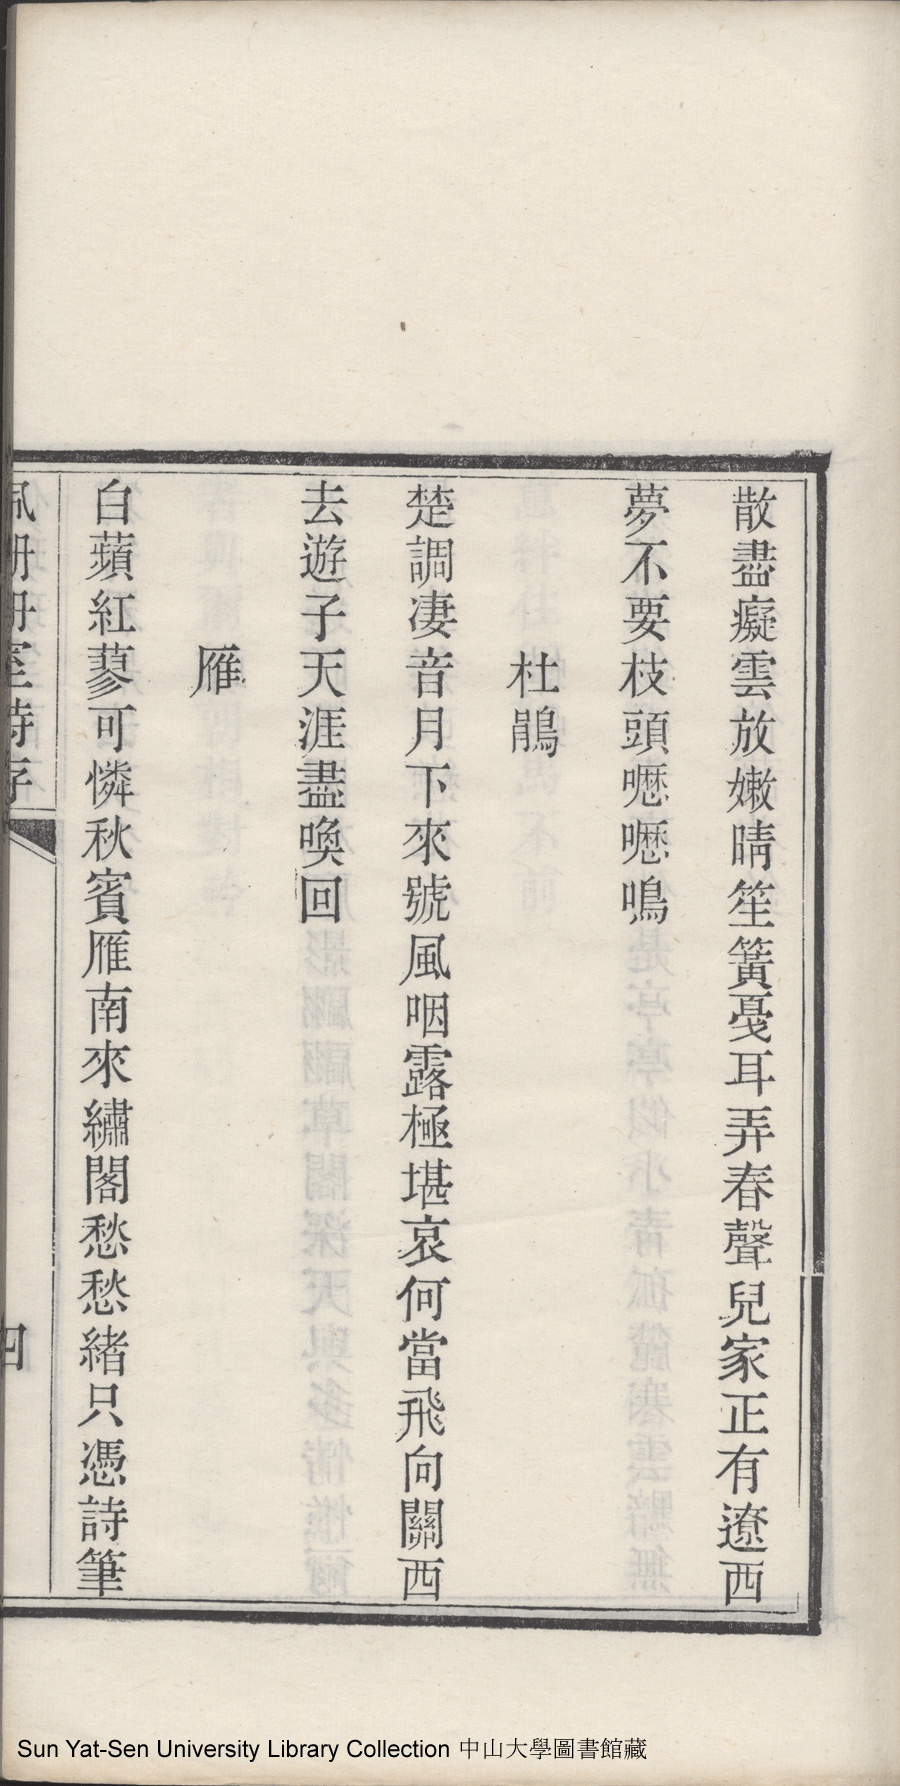 散盡癡雲放嫩晴笙簧戛耳弄春聲兒家正有遼西
夢不要枝頭嚦嚦鳴
杜鵑
楚調凄音月下來號風咽露極堪哀何當飛向關西
去遊子天涯盡喚回
雁
白蘋紅蓼可憐秋賓雁南來繡閣愁愁緒只憑詩筆
珊珊室詩存
四
Sun Yat-Sen University Library Collection 中山大學圖書館藏